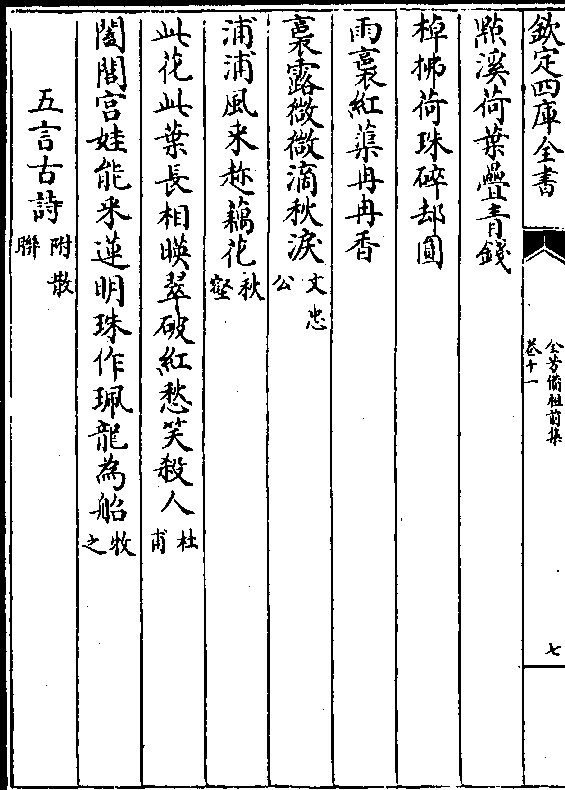 欽定四庫全書
全芳備祖前集
卷十一
七
點溪荷葉疊青錢
棹拂荷珠碎却圓
雨裛紅蕖冉冉香
裛露微微滴秋淚文忠公
浦浦風来趂藕花秋壑
此花此葉長相暎翠破紅愁笑殺人杜甫
闔閭宫娃能采蓮明珠作珮龍為船牧之
五言古詩附散聯